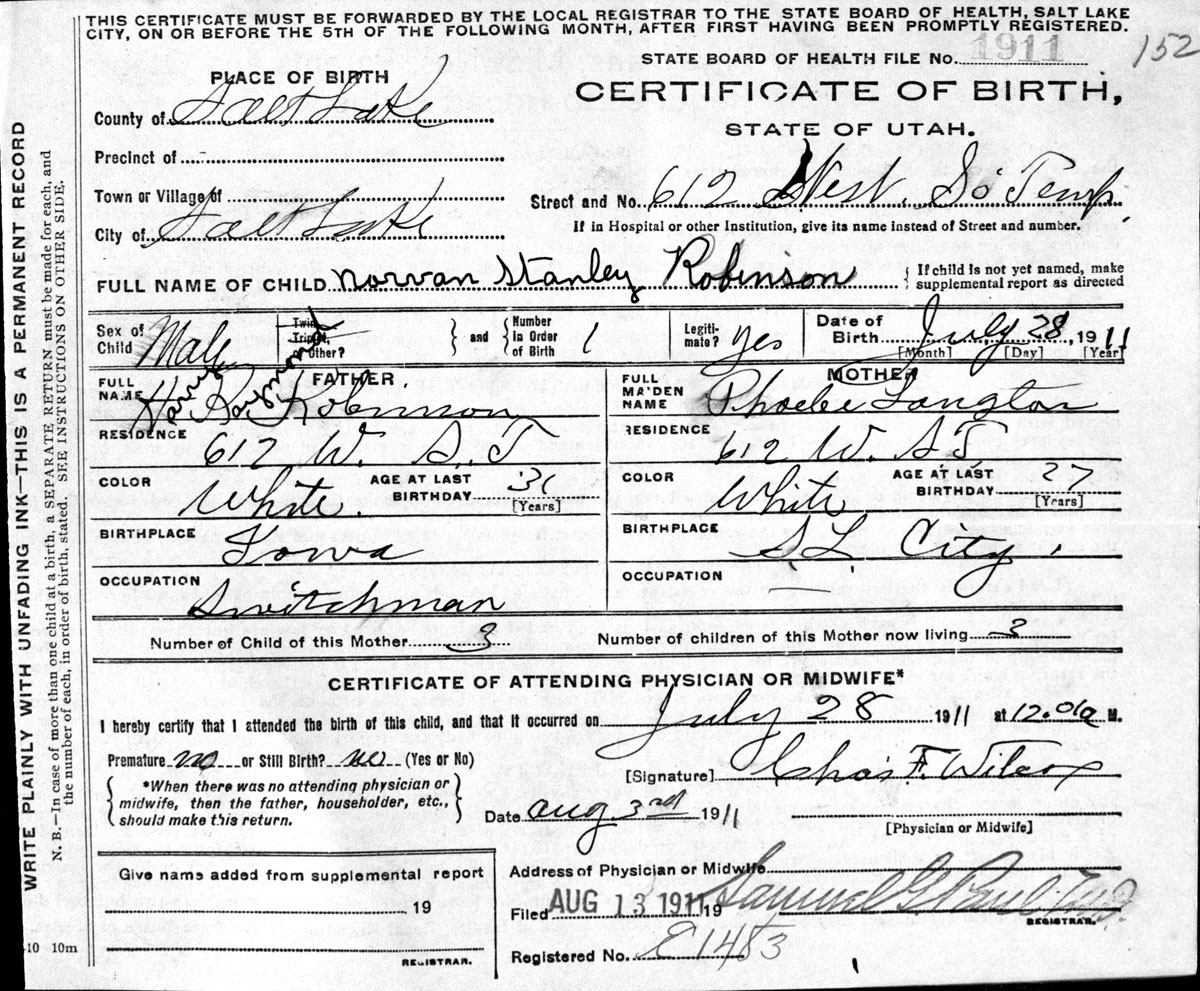 THIS CERTIFICATE MUST BE FORWARDED BY THE LOCAL REGISTRAR TO THE STATE BOARD OF HEALTH, SALT LAKE
CITY, ON OR BEFORE THE 5TH OF THE FOLLOWING MONTH, AFTER FIRST HAVING BEEN PROMPTLY REGISTERED.
152
STATE BOARD OF HEALTH FILE No. 1911
PLACE OF BIRTH
CERTIFICATE OF BIRTH,
STATE OF UTAH.
County of Salt Lake
Precinct of
Town or Village of
Street and No. 612 West. So Temp.
City of Salt Lake
If in Hospital or other Institution, give its name instead of Street and number.
FULL NAME OF CHILD Norvan Stanley Robinson { If child is not yet named, make
supplemental report as directed
Sex of Child Male Twin Triplet, Other? } and { Number In Order of Birth 1 Legiti-mate? Yes Date of Birth July 28, 1911
[Month] [Day] [Year]
FATHER. MOTHER
FULL NAME Harry Raymond R. Robinson
FULL MAIDEN NAME Phoebe Langton
RESIDENCE 612 W. S. T
RESIDENCE 612 W. S T
COLOR White. AGE AT LAST BIRTHDAY 31 [Years]
COLOR White AGE AT LAST BIRTHDAY 27 [Years]
BIRTHPLACE Iowa
BIRTHPLACE S L City.
OCCUPATION Switchman
OCCUPATION —
Number of Child of this Mother 3 Number of children of this Mother now living 3
CERTIFICATE OF ATTENDING PHYSICIAN OR MIDWIFE*
I hereby certify that I attended the birth of this child, and that it occurred on July 28 1911 at 12.01a M.
Premature no or Still Birth? no (Yes or No)
[Signature] Chas F. Wilcox
{ *When there was no attending physician or
midwife, then the father, householder, etc.,
should make this return. }
Date Aug 3rd 1911
[Physician or Midwife]
Give name added from supplemental report
19
REGISTRAR.
Address of Physician or Midwife
Filed AUG 13 1911 19 Samuel G Paul
REGISTRAR.
Registered No. E1483
10 10m
WRITE PLAINLY WITH UNFADING INK—THIS IS A PERMANENT RECORD
N. B.—In case of more than one child at a birth, a SEPARATE RETURN must be made for each, and
the number of each, in order of birth, stated. SEE INSTRUCTIONS ON OTHER SIDE.